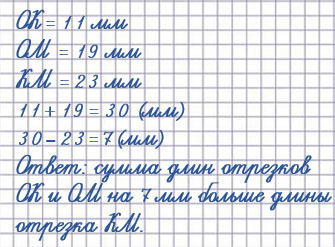 ОК = 11 мм
ОМ = 19 мм
КМ = 23 мм
11 + 19 = 30 (мм)
30 – 23 = 7 (мм)
Ответ: сумма длин отрезков
ОК и ОМ на 7 мм больше длины
отрезка КМ.